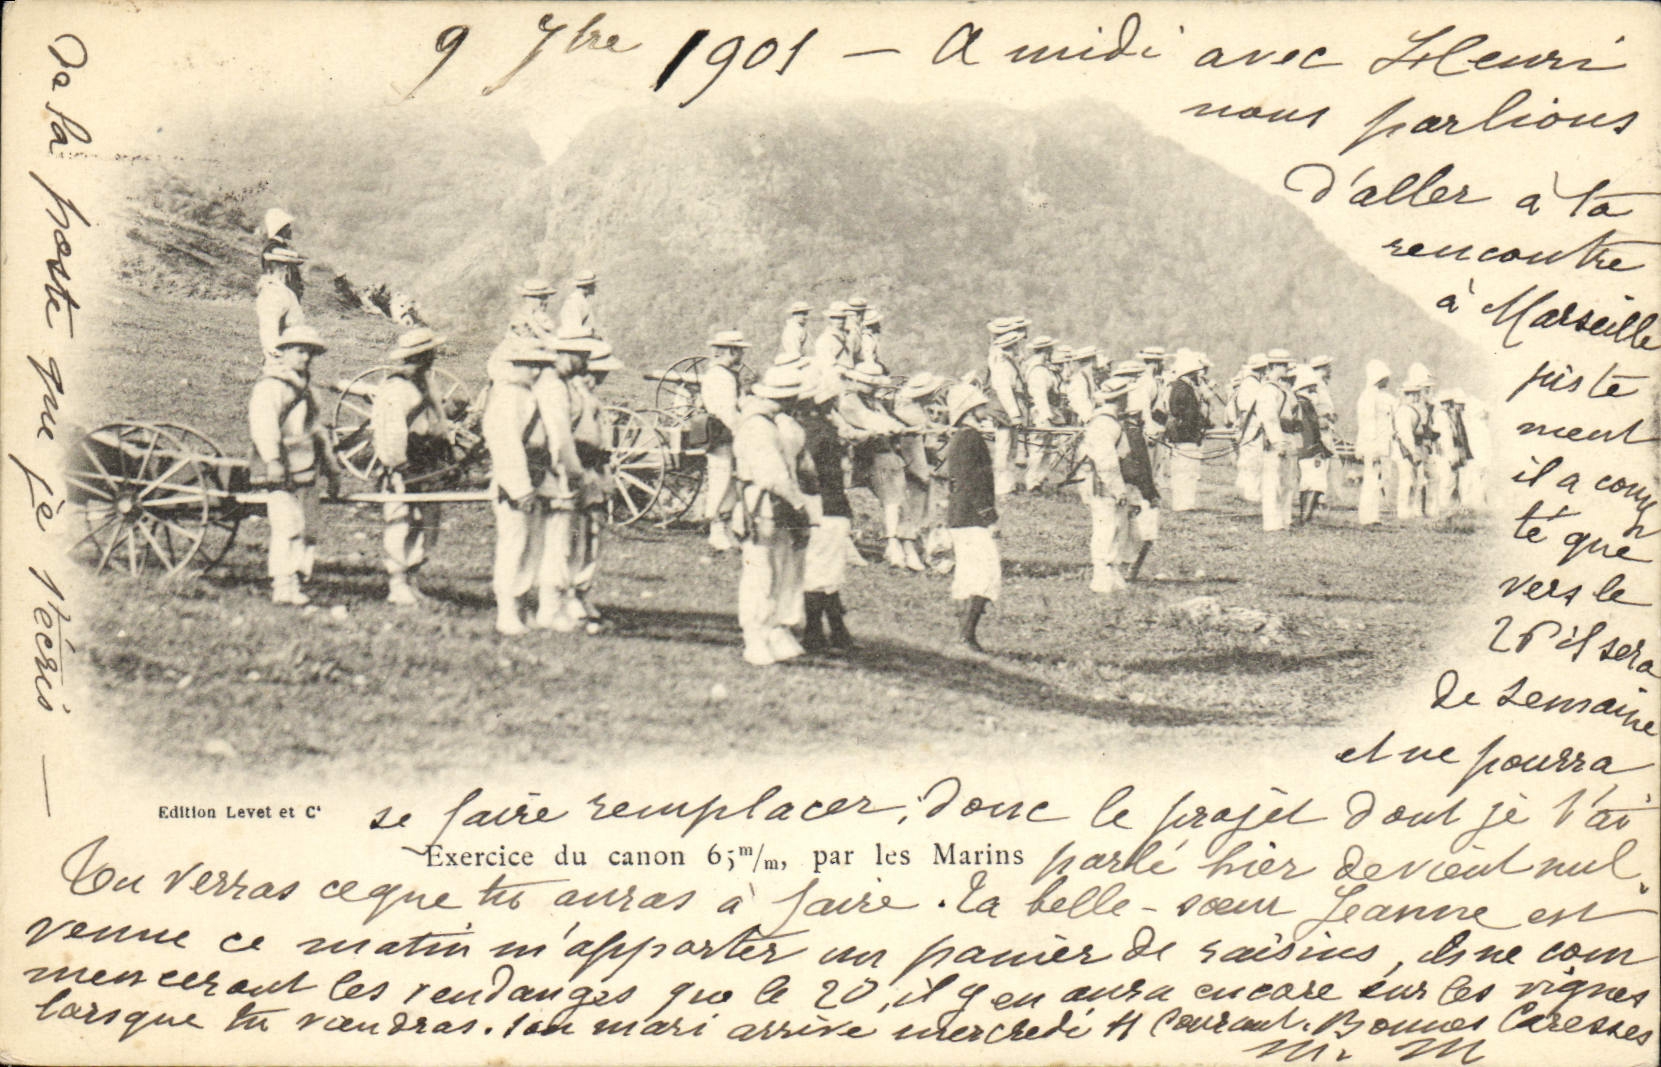 9 7bre 1901 — A midi avec Henri
nous parlions
d'aller à ta
rencontre
à Marseille
juste
ment
il a comp
té que
vers le
25 il sera
de semaine
et ne pourra
se faire remplacer, donc le projet dont je t'ai
parlé hier devient nul.
Tu verras ce que tu auras à faire. Ta belle-sœur Jeanne est
venue ce matin m'apporter un panier de raisins, ils ne com
menceront les vendanges que le 20, il y en aura encore sur les vignes
lorsque tu viendras. Son mari arrive mercredi 11 Courant. Bonnes Caresses
M. M
De la poste que je t'écris —
Edition Levet et Cie
Exercice du canon 65m/m, par les Marins